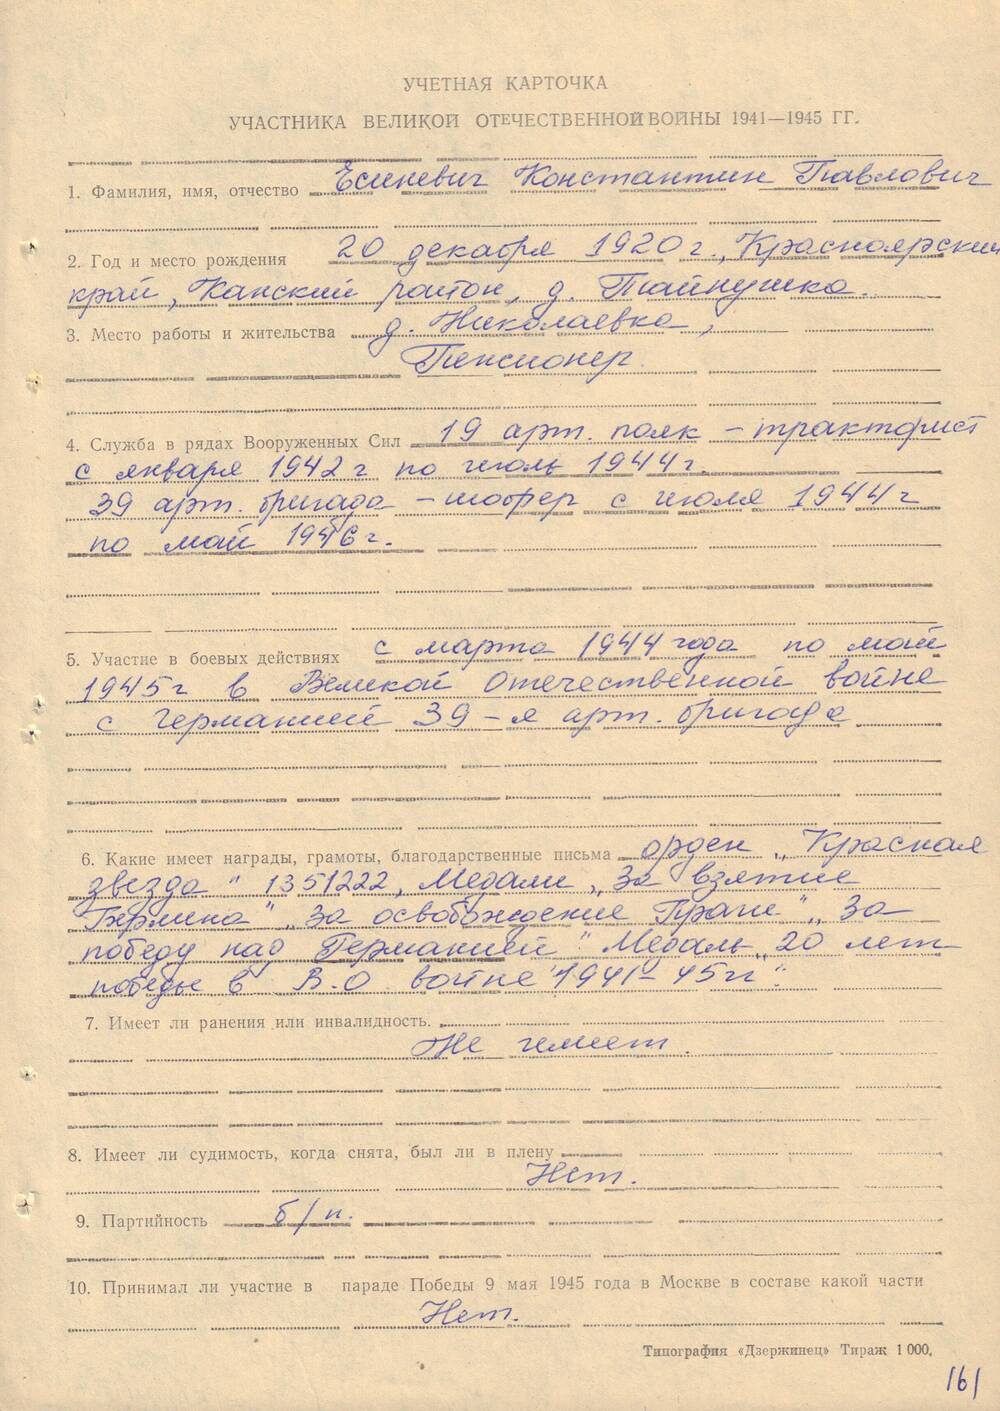 УЧЕТНАЯ КАРТОЧКА
УЧАСТНИКА ВЕЛИКОЙ ОТЕЧЕСТВЕННОЙ ВОЙНЫ 1941—1945 ГГ.
1. Фамилия, имя, отчество Есиневич Константин Павлович
2. Год и место рождения 20 декабря 1920 г., Красноярский
край, Канский район, д. Тайнушка.
3. Место работы и жительства д. Николаевка,
Пенсионер.
4. Служба в рядах Вооруженных Сил 19 арт. полк - тракторист
с января 1942 г по июль 1944 г.
39 арт. бригада - шофер с июля 1944 г
по май 1946 г.
5. Участие в боевых действиях с марта 1944 года по май
1945 г в Великой Отечественной войне
с Германией 39-я арт. бригада
6. Какие имеет награды, грамоты, благодарственные письма орден „Красная
звезда" 1351222, Медали „За взятие
Берлина" „За освобождение Праги" „За
победу над Германией" Медаль „20 лет
победы в В.О. войне 1941-45 гг".
7. Имеет ли ранения или инвалидность.
Не имеет.
8. Имеет ли судимость, когда снята, был ли в плену
Нет.
9. Партийность б/п.
10. Принимал ли участие в параде Победы 9 мая 1945 года в Москве в составе какой части
Нет.
Типография «Дзержинец» Тираж 1 000.
161